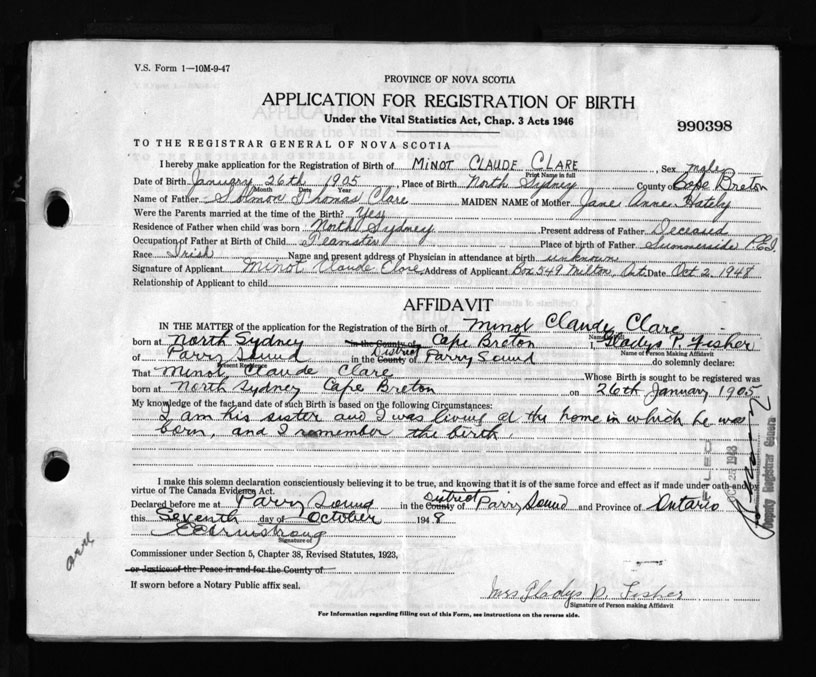 V.S. Form 1—10M-9-47
PROVINCE OF NOVA SCOTIA
APPLICATION FOR REGISTRATION OF BIRTH
Under the Vital Statistics Act, Chap. 3 Acts 1946
990398
TO THE REGISTRAR GENERAL OF NOVA SCOTIA
I hereby make application for the Registration of Birth of MINOT CLAUDE CLARE, Sex male
Print Name in full
Date of Birth January 26th 1905, Place of Birth North Sydney County of Cape Breton
Month Date Year
Name of Father Thomas Clare MAIDEN NAME of Mother Jane Anne Hately
Were the Parents married at the time of the Birth? Yes
Residence of Father when child was born North Sydney Present address of Father Deceased
Occupation of Father at Birth of Child Teamster Place of birth of Father Summerside P.E.I.
Race Irish Name and present address of Physician in attendance at birth unknown
Signature of Applicant Minot Claude Clare Address of Applicant Box 549 Milton, Ont. Date Oct 2, 1948
Relationship of Applicant to child
AFFIDAVIT
IN THE MATTER of the application for the Registration of the Birth of Minot Claude Clare
born at North Sydney in the County of Cape Breton I, Gladys P. Fisher
Name of Person Making Affidavit
of Parry Sound in the County of District Parry Sound do solemnly declare:
Present Residence
That Minot Claude Clare Whose Birth is sought to be registered was
born at North Sydney Cape Breton on 26th January 1905
My knowledge of the fact and date of such Birth is based on the following Circumstances:
I am his sister and I was living at the home in which he was
born, and I remember the birth.
I make this solemn declaration conscientiously believing it to be true, and knowing that it is of the same force and effect as if made under oath and by
virtue of The Canada Evidence Act.
Declared before me at Parry Sound in the County of District Parry Sound and Province of Ontario
this Seventh day of October 1948
Armstrong
Signature of
Commissioner under Section 5, Chapter 38, Revised Statutes, 1923,
or Justice of the Peace in and for the County of
If sworn before a Notary Public affix seal.
Mrs. Gladys P. Fisher
Signature of Person making Affidavit
For Information regarding filling out of this Form, see instructions on the reverse side.
FILED
1948
Deputy Registrar General